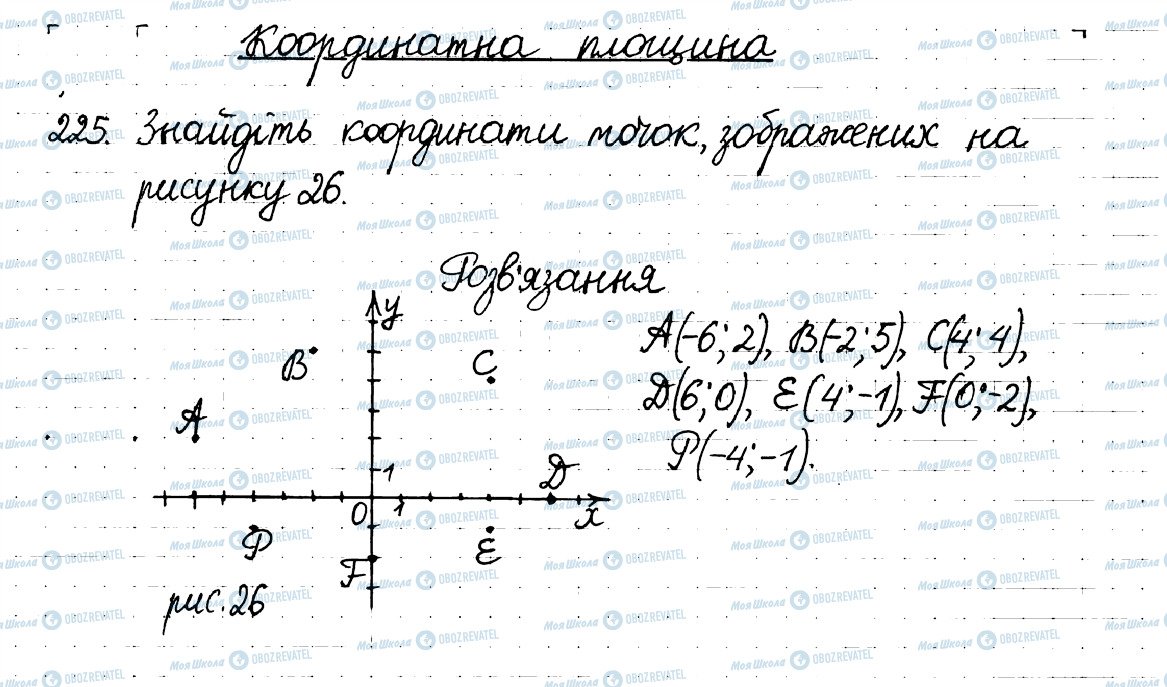 Координатна площина
225. Знайдіть координати точок, зображених на
рисунку 26.
Розв'язання
y
B
C
A
A(-6; 2), B(-2; 5), C(4; 4),
D(6; 0), E(4; -1), F(0; -2),
P(-4; -1).
1
D
0
1
x
P
E
F
рис. 26
МояШкола OBOZREVATEL